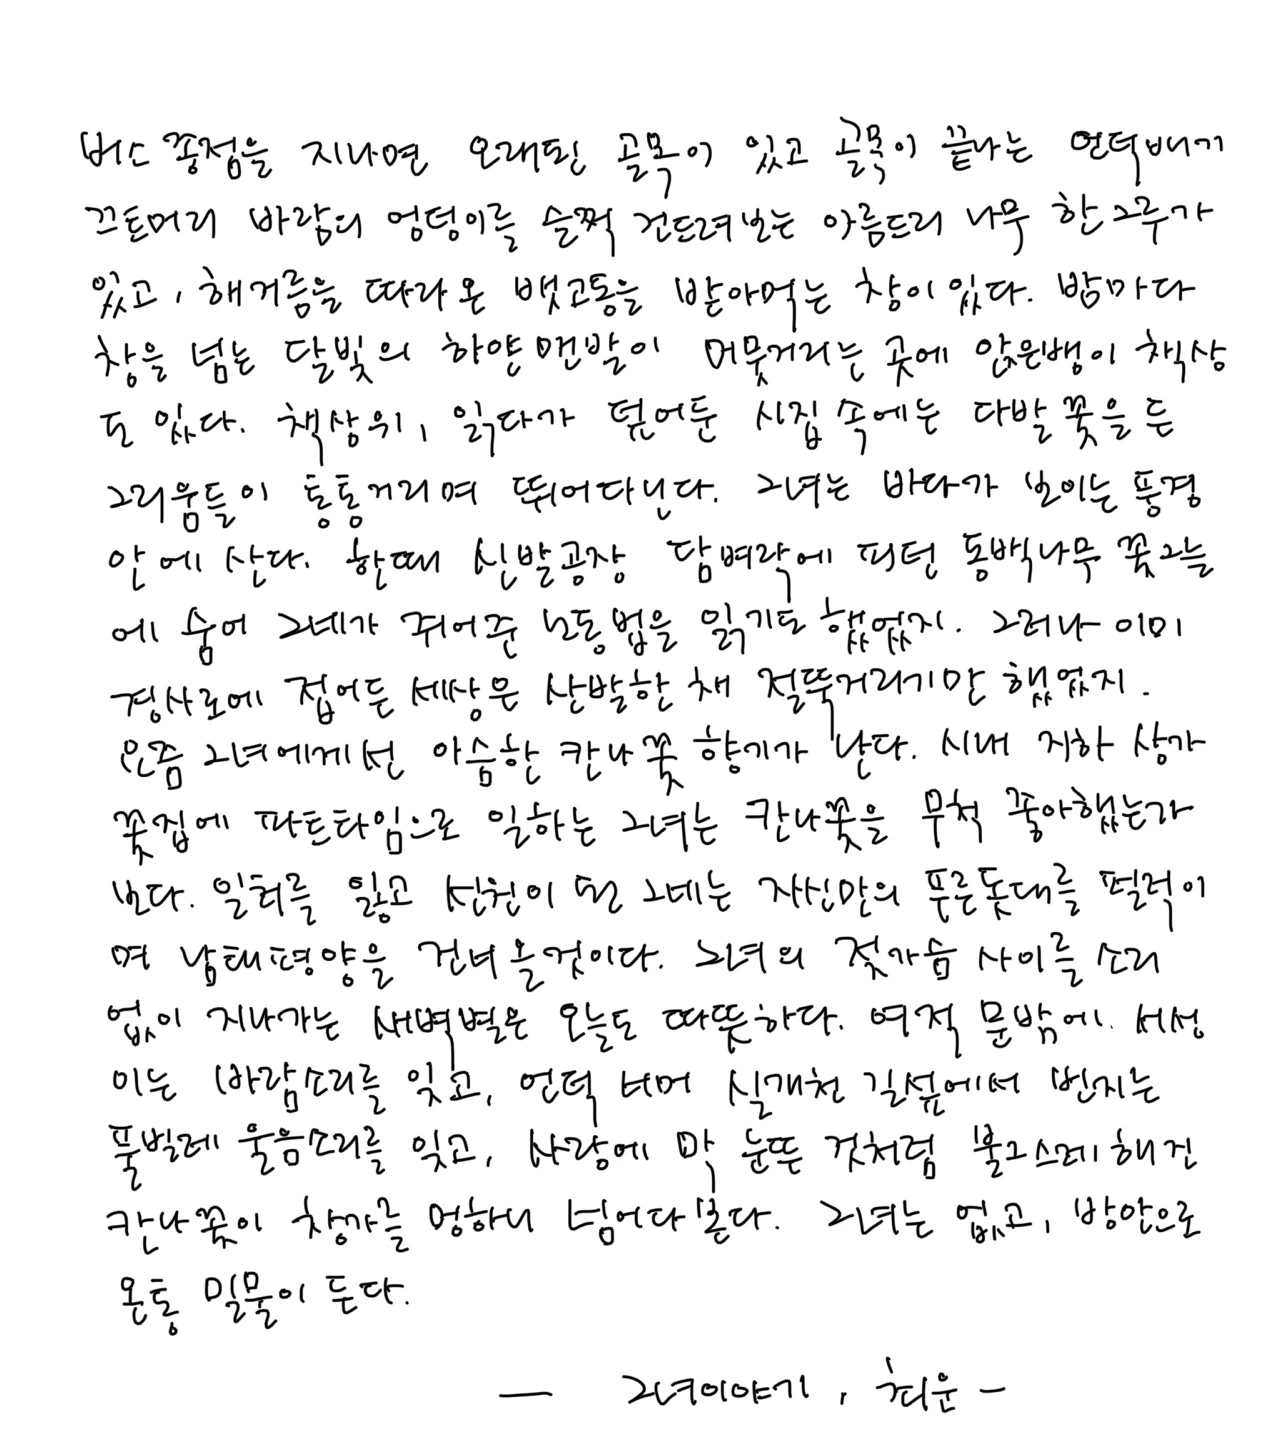 버스 종점을 지나면 오래된 골목이 있고 골목이 끝나는 언덕배기
끄트머리 바람의 엉덩이를 슬쩍 건드려보는 아름드리 나무 한그루가
있고, 해거름을 따라 온 뱃고동을 받아먹는 창이 있다. 밤마다
창을 넘는 달빛의 하얀 맨발이 머뭇거리는 곳에 앉은뱅이 책상
도 있다. 책상위, 읽다가 덮어둔 시집 속에는 다발 꽃을 든
그리움들이 통통거리며 뛰어다닌다. 그녀는 바다가 보이는 풍경
안에 산다. 한때 신발공장 담벼락에 피던 동백나무 꽃그늘
에 숨어 그네가 쥐어준 노동법을 읽기도 했었지. 그러나 이미
경사로에 접어든 세상은 산발한 채 절뚝거리기만 했었지.
요즘 그녀에게선 아슴한 칸나꽃 향기가 난다. 시내 지하 상가
꽃집에 파트타임으로 일하는 그녀는 칸나꽃을 무척 좋아했는가
보다. 일터를 잃고 선원이 된 그네는 자신만의 푸른돛대를 펄럭이
며 남태평양을 건너 올것이다. 그녀의 젖가슴 사이를 소리
없이 지나가는 새벽별은 오늘도 따뜻하다. 여적 문밖에 서성
이는 바람소리를 잊고, 언덕 너머 실개천 길섶에서 번지는
풀벌레 울음소리를 잊고, 사랑에 막 눈뜬 것처럼 불그스레해진
칸나꽃이 창가를 멍하니 넘어다본다. 그녀는 없고, 방안으로
온통 밀물이 든다.
— 그녀이야기, 최운 -